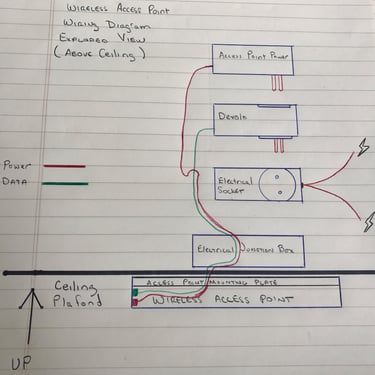 Wireless Access Point
Wiring Diagram
Exploded View
(Above Ceiling)
Access Point Power
Devolo
Power
DATA
Electrical
Socket
Electrical Junction Box
Ceiling
Plafond
Access Point Mounting Plate
Wireless Access Point
UP